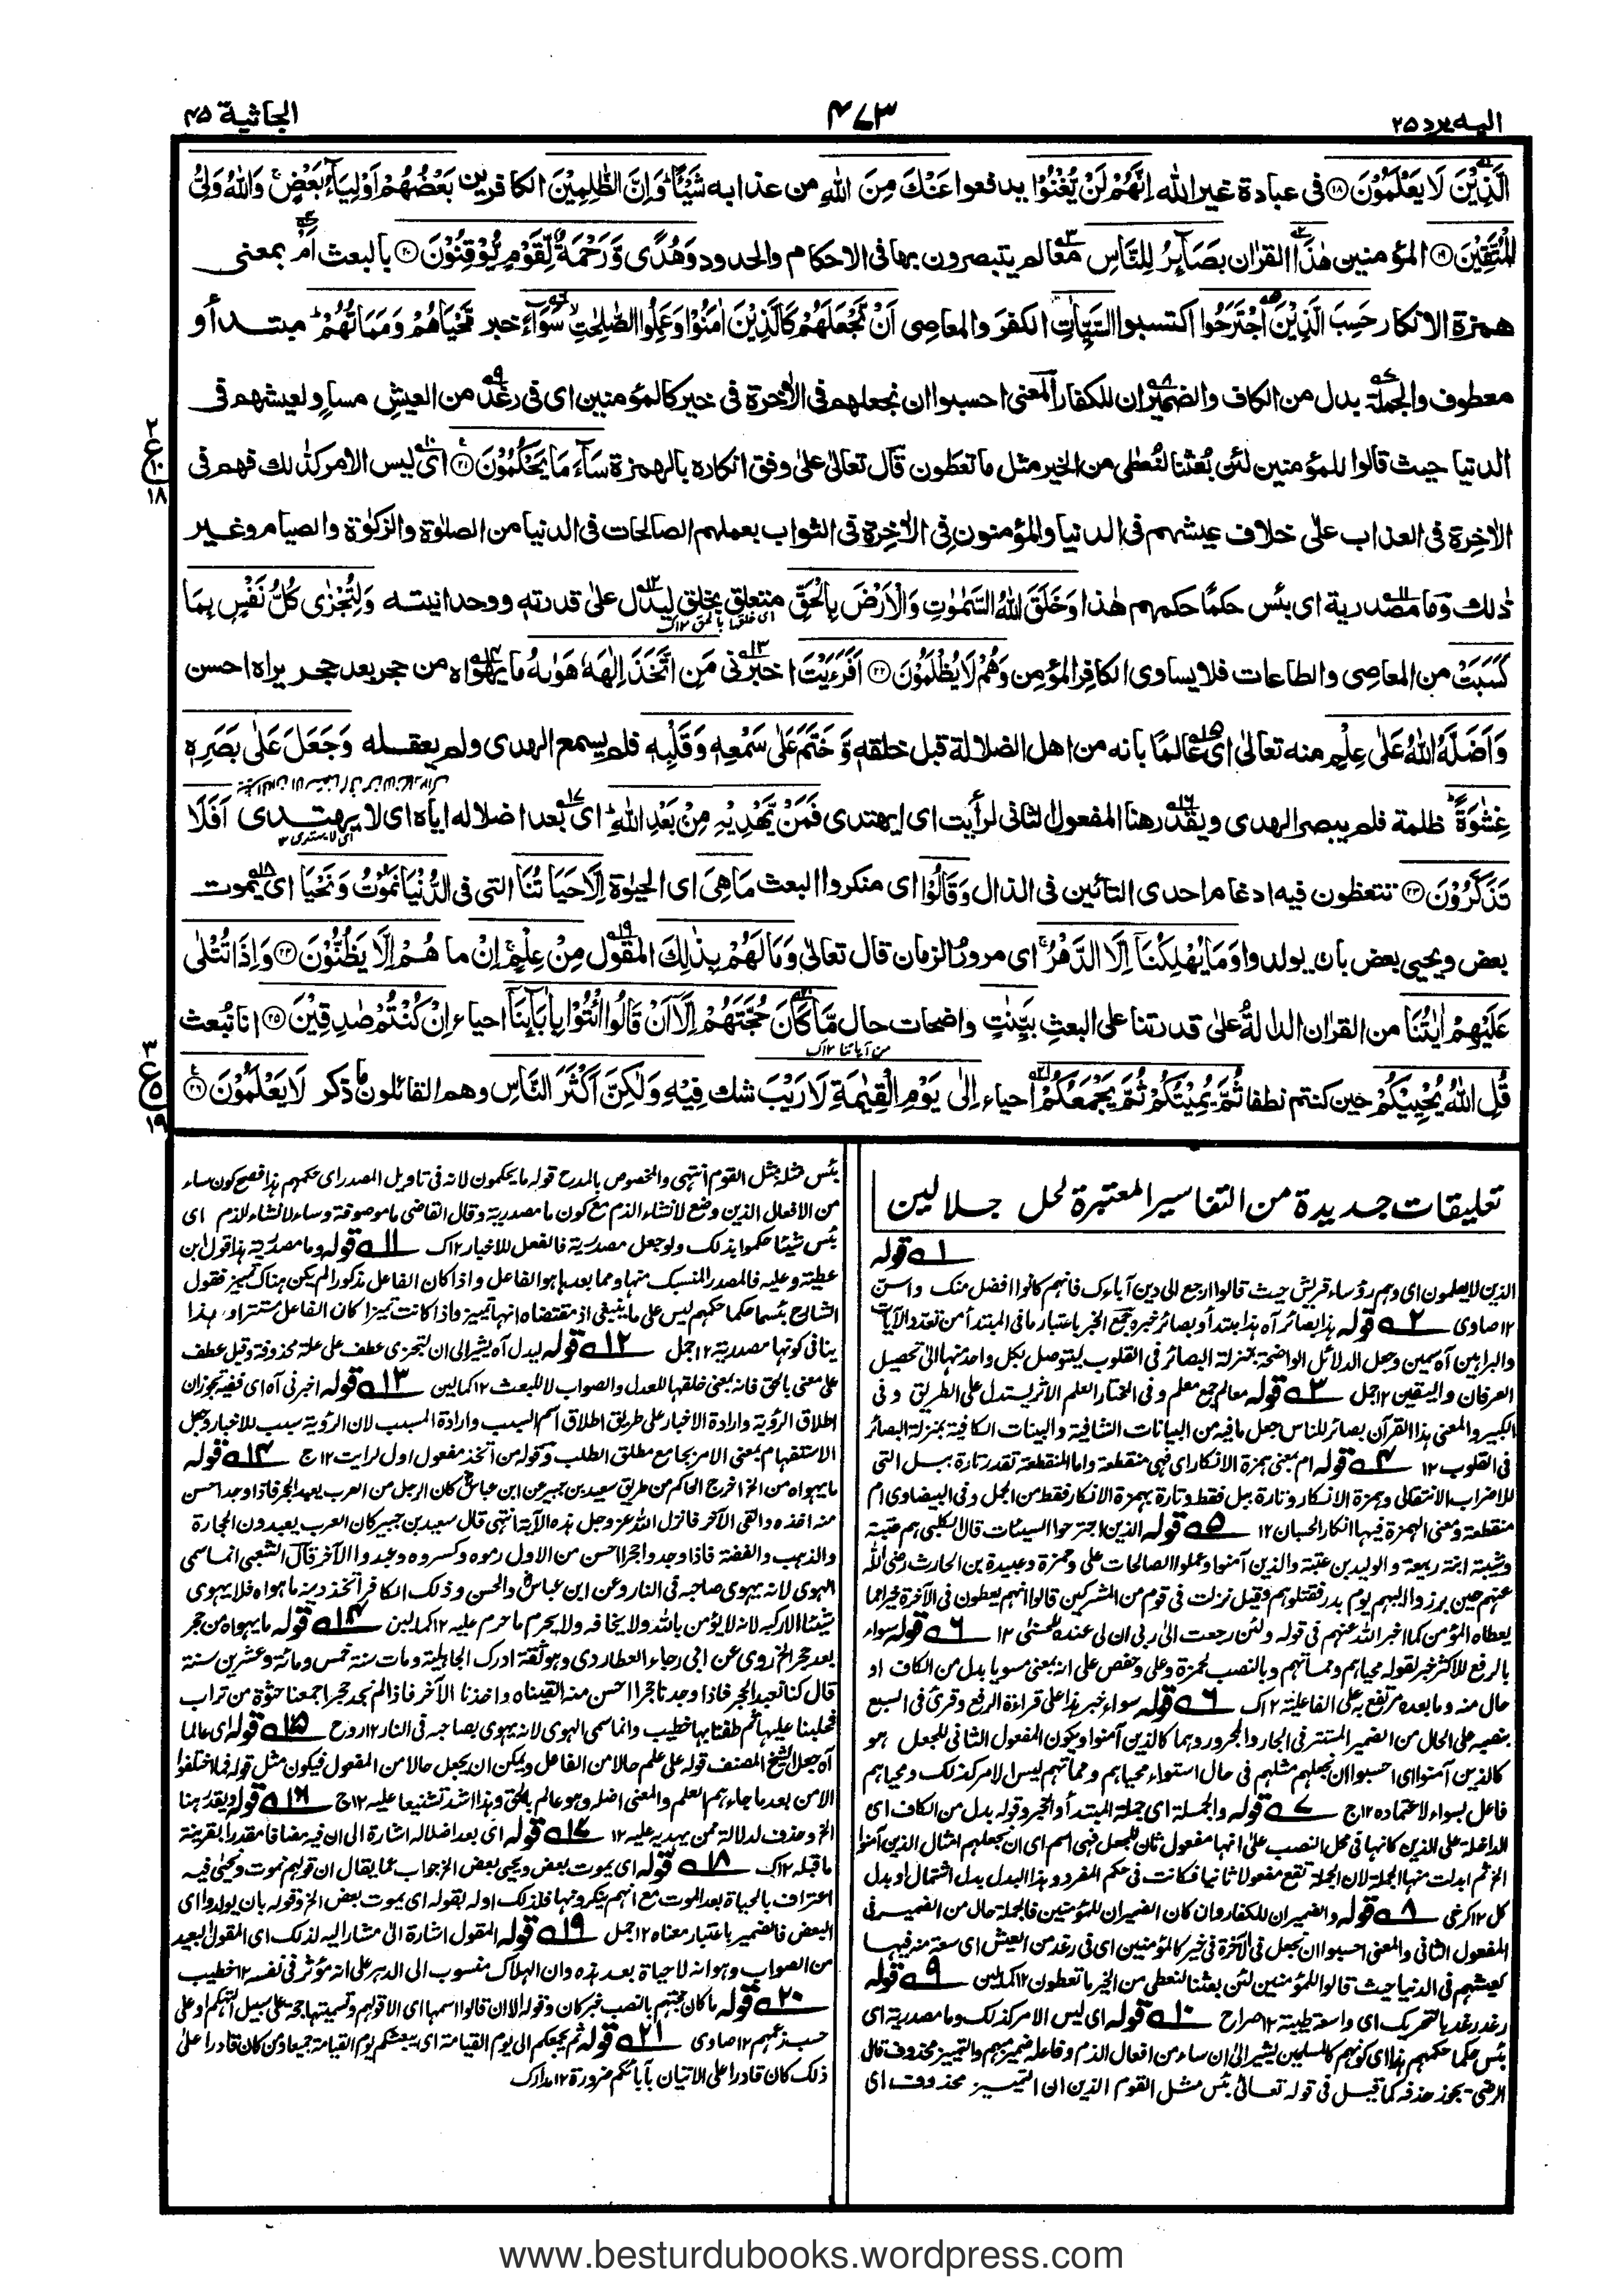 اليه يرد ٢٥
٤٧٣
الجاثية ٤٥
الَّذِيْنَ لَا يَعْلَمُوْنَ ⑱ فى عبادة غير الله اِنَّهُمْ لَنْ يُّغْنُوْا يدفعوا عَنْكَ مِنَ اللهِ من عذابه شَيْئًا ؕ وَاِنَّ الظّٰلِمِيْنَ الكافرين بَعْضُهُمْ اَوْلِيَآءُ بَعْضٍ ۚ وَاللهُ وَلِىُّ
الْمُتَّقِيْنَ ⑲ المؤمنين هٰذَا القرٰان بَصَآئِرُ لِلنَّاسِ معالم يتبصرون بها فى الاحكام والحدود وَهُدًى وَّرَحْمَةٌ لِّقَوْمٍ يُّوْقِنُوْنَ ⑳ بالبعث اَمْ بمعنى
همزة الانكار حَسِبَ الَّذِيْنَ اجْتَرَحُوا اكتسبوا السَّيِّاٰتِ الكفرَ والمعاصى اَنْ نَّجْعَلَهُمْ كَالَّذِيْنَ اٰمَنُوْا وَعَمِلُوا الصّٰلِحٰتِ سَوَآءً خبر مَّحْيَاهُمْ وَمَمَاتُهُمْ ؕ مبتدأ و
معطوف والجملة بدل من الكاف والضميران للكفار المعنى احسبوا ان نجعلهم فى الاٰخرة فى خير كالمؤمنين اى فى رغد من العيش مساوٍ لعيشهم فى
الدنيا حيث قالوا للمؤمنين لئن بُعثنا لنُعطٰى من الخير مثل ما تعطَون قال تعالىٰ علىٰ وفق انكاره بالهمزة سَآءَ مَا يَحْكُمُوْنَ ㉑ اى ليس الامر كذٰلك فهم فى
الاٰخرة فى العذاب علىٰ خلاف عيشهم فى الدنيا والمؤمنون فى الاٰخرة فى الثواب بعملهم الصالحات فى الدنيا من الصلوٰة والزكوٰة والصيام وغير
ذٰلك وما مصدرية اى بئس حكمًا حكمهم هٰذا وَخَلَقَ اللهُ السَّمٰوٰتِ وَالْاَرْضَ بِالْحَقِّ متعلق بخلق ليدل علىٰ قدرته ووحدانيته وَلِتُجْزٰى كُلُّ نَفْسٍۢ بِمَا
كَسَبَتْ من المعاصى والطاعات فلا يساوى الكافر المؤمن وَهُمْ لَا يُظْلَمُوْنَ ㉒ اَفَرَءَيْتَ اخبرنى مَنِ اتَّخَذَ اِلٰهَهٗ هَوٰىهُ ما يهواه من حجر بعد حجر يراه احسن
وَاَضَلَّهُ اللهُ عَلٰى عِلْمٍ منه تعالىٰ اى عالمًا بانه من اهل الضلالة قبل خلقه وَّخَتَمَ عَلٰى سَمْعِهٖ وَقَلْبِهٖ فلم يسمع الهدى ولم يعقله وَجَعَلَ عَلٰى بَصَرِهٖ
غِشٰوَةً ؕ ظلمة فلم يبصر الهدى ويقدر هنا المفعول الثانى لرأيت اى ايهتدى فَمَنْ يَّهْدِيْهِ مِنْۢ بَعْدِ اللهِ ؕ اى بعد اضلاله اياه اى لا يهتدى اَفَلَا
تَذَكَّرُوْنَ ㉓ تتعظون فيه ادغام احدى التائين فى الذال وَقَالُوْا اى منكروا البعث مَا هِىَ اى الحيوٰة اِلَّا حَيَاتُنَا التى فى الدُّنْيَا نَمُوْتُ وَنَحْيَا اى يموت
بعض ويحيى بعض بان يولدوا وَمَا يُهْلِكُنَآ اِلَّا الدَّهْرُ ۚ اى مرور الزمان قال تعالىٰ وَمَا لَهُمْ بِذٰلِكَ المقول مِنْ عِلْمٍ ۚ اِنْ ما هُمْ اِلَّا يَظُنُّوْنَ ㉔ وَاِذَا تُتْلٰى
عَلَيْهِمْ اٰيٰتُنَا من القراٰن الدالة علىٰ قدرتنا على البعث بَيِّنٰتٍ واضحات حال مَّا كَانَ حُجَّتَهُمْ اِلَّآ اَنْ قَالُوا ائْتُوْا بِاٰبَآئِنَآ احياء اِنْ كُنْتُمْ صٰدِقِيْنَ ㉕ انا نُبعث
قُلِ اللهُ يُحْيِيْكُمْ حين كنتم نطفا ثُمَّ يُمِيْتُكُمْ ثُمَّ يَجْمَعُكُمْ احياء اِلٰى يَوْمِ الْقِيٰمَةِ لَا رَيْبَ شك فِيْهِ وَلٰكِنَّ اَكْثَرَ النَّاسِ وهم القائلون ما ذكر لَا يَعْلَمُوْنَ ㉖
تعليقات جديدة من التفاسير المعتبرة لحل جلالين
١ قوله
الذين لا يعلمون اى وهم رؤساء قريش حيث قالوا ارجع الى دين آباءك فانهم كانوا افضل منك واسن
١٢ صاوى ٢ قوله هذا بصائر آه هذا مبتدأ وبصائر خبره وجمع الخبر باعتبار ما فى المبتدأ من تعدد الآيات
والبراهين آه سمين وجعل الدلائل الواضحة بمنزلة البصائر فى القلوب ليتوصل بكل واحد منها الى تحصيل
العرفان واليقين ١٢ جمل ٣ قوله معالم جمع معلم وفى المختار العلم الاثر يستدل على الطريق وفى
الكبير والمعنى هذا القرآن بصائر للناس جعل ما فيه من البيانات الشافية والبينات الكافية بمنزلة البصائر
فى القلوب ١٢ ٤ قوله ام بمعنى همزة الانكار اى فهى منقطعة واما المنقطعة تقدر تارة ببل التى
للاضراب الانتقالى وهمزة الانكار وتارة ببل فقط وتارة بهمزة الانكار فقط من الجمل وفى البيضاوى ام
منقطعة ومعنى الهمزة فيها انكار الحسبان ١٢ ٥ قوله الذين اجترحوا السيئات قال الكلبى هم عتبة
وشيبة ابنة ربيعة والوليد بن عتبة والذين آمنوا وعملوا الصالحات على وحمزة وعبيدة بن الحارث رضى الله
عنهم حين برزوا اليهم يوم بدر فقتلوهم وقيل نزلت فى قوم من المشركين قالوا انهم يعطون فى الآخرة خيرا مما
يعطاه المؤمن كما اخبر الله عنهم فى قوله ولئن رجعت الى ربى ان لى عنده للحسنى ١٢ ٦ قوله سواء
بالرفع للاكثر خبر لقوله محياهم ومماتهم وبالنصب لحمزة وعلى وحفص على انه بمعنى مسويا بدل من الكاف او
حال منه وما بعده مرتفع به على الفاعلية ١٢ك ٦ قوله سواء خبر هذا على قراءة الرفع وقرئ فى السبع
بنصبه على الحال من الضمير المستتر فى الجار والمجرور وهما كالذين آمنوا ويكون المفعول الثانى للجعل هو
كالذين آمنوا اى احسبوا ان نجعلهم مثلهم فى حال استواء محياهم ومماتهم ليس الامر كذلك ومحياهم
فاعل بسواء لاعتماده ١٢ ج ٧ قوله والجملة اى جملة المبتدأ والخبر وقوله بدل من الكاف اى
الداخلة على الذين كانها فى محل النصب على انها مفعول ثان للجعل فهى اسم اى ان نجعلهم امثال الذين آمنوا
الخ ثم ابدلت منها الجملة لان الجملة تقع مفعولا ثانيا فكانت فى حكم المفرد وهذا البدل بدل اشتمال او بدل
كل ١٢ كرخى ٨ قوله والضميران للكفار وان كان الضميران للمؤمنين فالجملة حال من الضمير فى
المفعول الثانى والمعنى احسبوا ان نجعل فى الآخرة فى خير كالمؤمنين اى فى رغد من العيش اى سعة منه فيها
كعيشهم فى الدنيا حيث قالوا للمؤمنين لئن بعثنا لنعطى من الخير ما تعطون ١٢ كمالين ٩ قوله
رغد رغد بالتحريك اى واسعة طيبة ١٢ صراح ١٠ قوله اى ليس الامر كذلك وما مصدرية اى
بئس حكما حكمهم هذا اى كونهم كالمسلمين يشير الى ان ساء من افعال الذم وفاعله ضمير مبهم والتمييز محذوف قال
الرضى يجوز حذفه كما قيل فى قوله تعالى بئس مثل القوم الذين ان التمييز محذوف اى
بئس مثلا مثل القوم انتهى والمخصوص بالمدح قوله ما يحكمون لانه فى تاويل المصدر اى حكمهم هذا فصح كون ساء
من الافعال الذين وضع لانشاء الذم مع كون ما مصدرية وقال القاضى ما موصوفة وساء لانشاء الذم اى
بئس شيئا حكموا بذلك ولو جعل مصدرية فالفعل للاخبار ١٢ك ١١ قوله وما مصدرية هذا قول ابن
عطية وعليه فالمصدر المنسبك منها ومما بعدها هو الفاعل واذا كان الفاعل مذكورا لم يكن هناك تمييز فقول
الشارح بئسما حكما حكمهم ليس على ما ينبغى اذ مقتضاه انها تمييز واذا كانت تميزا كان الفاعل مستترا وهذا
ينافى كونها مصدرية ١٢ جمل ١٢ قوله ليدل آه يشير الى ان لتجزى عطف على علة محذوفة وقيل عطف
على معنى بالحق فانه بمعنى خلقها للعدل والصواب لا للعبث ١٢ كمالين ١٣ قوله اخبرنى آه اى ففيه تجوزان
اطلاق الرؤية وارادة الاخبار على طريق اطلاق اسم السبب وارادة المسبب لان الرؤية سبب للاخبار وجعل
الاستفهام بمعنى الامر بجامع مطلق الطلب وقوله من اتخذ مفعول اول لرايت ١٢ ج ١٤ قوله
ما يهواه من الخ اخرج الحاكم من طريق سعيد بن جبير عن ابن عباس كان الرجل من العرب يعبد الحجر فاذا وجد احسن
منه اخذه والقى الآخر فانزل الله عز وجل هذه الآية انتهى قال سعيد بن جبير كان العرب يعبدون الحجارة
والذهب والفضة فاذا وجدوا حجرا احسن من الاول رموه وكسروه وعبدوا الآخر قال الشعبى انما سمى
الهوى لانه يهوى صاحبه فى النار وعن ابن عباس والحسن وذلك الكافر اتخذ دينه ما هواه فلا يهوى
شيئا الا ركبه لانه لا يؤمن بالله ولا يخافه ولا يحرم ما حرم عليه ١٢ كمالين ١٤ قوله ما يهواه من حجر
بعد حجر الخ روى عن ابى رجاء العطاردى وهو ثقة ادرك الجاهلية ومات سنة خمس ومائة وعشرين سنة
قال كنا نعبد الحجر فاذا وجدنا حجرا احسن منه القيناه واخذنا الآخر فاذا لم نجد حجرا جمعنا حثوة من تراب
فحلبنا عليها ثم طفنا بها خطيب وانما سمى الهوى لانه يهوى بصاحبه فى النار ١٢ روح ١٥ قوله اى عالما
آه جعل الشيخ المصنف قوله على علم حالا من الفاعل ويمكن ان يجعل حالا من المفعول فيكون مثل قوله فما اختلفوا
الا من بعد ما جاءهم العلم والمعنى اضله وهو عالم بالحق وهذا اشد تشنيعا عليه ١٢ ج ١٦ قوله ويقدر هنا
الخ وحذف لدلالة فمن يهديه عليه ١٢ ١٧ قوله اى بعد اضلاله اشارة الى ان فيه مضافا مقدرا بقرينة
ما قبله ١٢ك ١٨ قوله اى يموت بعض ويحيى بعض الخ جواب عما يقال ان قولهم نموت ونحيى فيه
اعتراف بالحياة بعد الموت مع انهم ينكرونها فلذلك اوله بقوله اى يموت بعض الخ وقوله بان يولدوا اى
البعض فالضمير باعتبار معناه ١٢ جمل ١٩ قوله المقول اشارة الى مشار اليه لذلك اى المقول البعيد
من الصواب وهو انه لا حياة بعد هذه وان الهلاك منسوب الى الدهر على انه مؤثر فى نفسه ١٢ خطيب
٢٠ قوله ما كان حجتهم بالنصب خبر كان وقوله الا ان قالوا اسمها اى الا قولهم وتسميتها حجة على سبيل التهكم او على
حسب زعمهم ١٢ صاوى ٢١ قوله ثم يجمعكم الى يوم القيامة اى يبعثكم يوم القيامة جميعا ومن كان قادرا على
ذلك كان قادرا على الاتيان بآبائكم ضرورة ١٢ مدارك
www.besturdubooks.wordpress.com